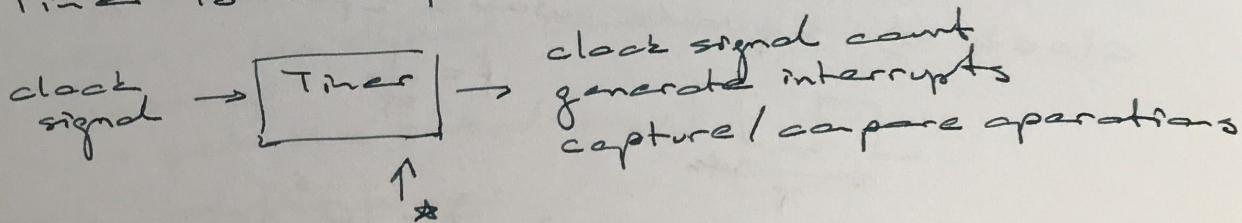 clock signal
Timer
clock signal count
generate interrupts
capture/compare operations